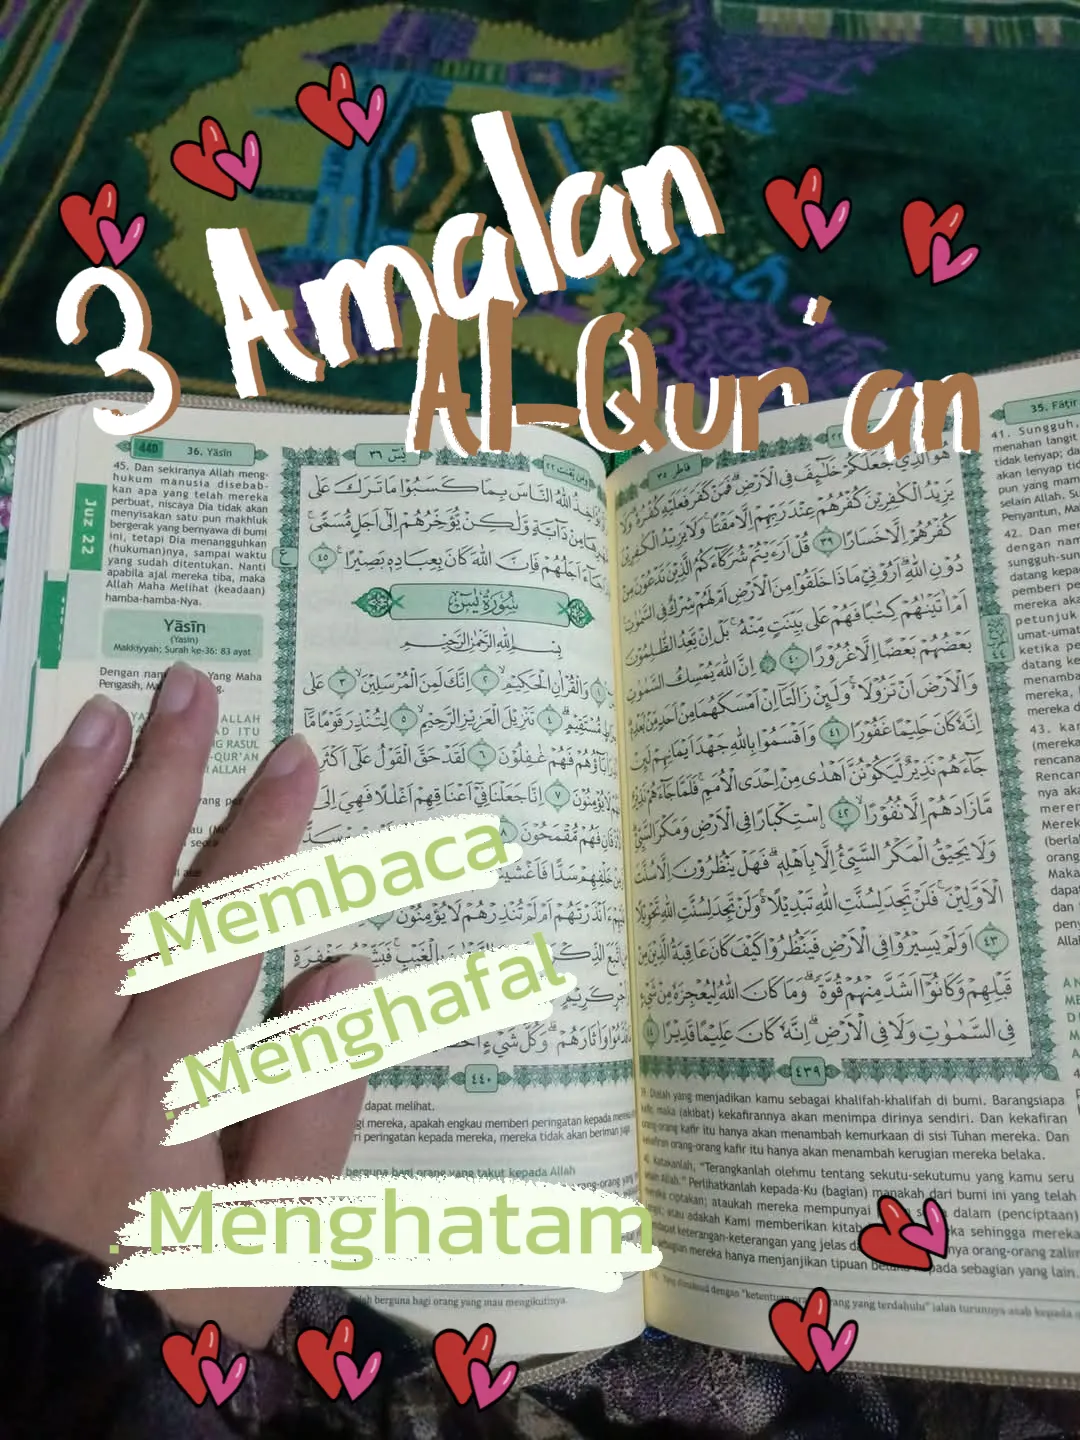 3 Amalan
Al-Qur'an
.Membaca
.Menghafal
.Menghatam
440
36. Yāsīn
45. Dan sekiranya Allah meng-
hukum manusia disebab-
kan apa yang telah mereka
perbuat, niscaya Dia tidak akan
menyisakan satu pun makhluk
bergerak yang bernyawa di bumi
ini, tetapi Dia menangguhkan
(hukuman)nya, sampai waktu
yang sudah ditentukan. Nanti
apabila ajal mereka tiba, maka
Allah Maha Melihat (keadaan)
hamba-hamba-Nya.
Juz 22
Yāsīn
(Yasin)
Makkiyyah; Surah ke-36: 83 ayat
Dengan Yang Maha
Pengasih,
ALLAH
ITU
RASUL
-QUR'AN
ALLAH
يٰسۤ ٣٦
وَمَنْ يَّقْنُتْ ٢٢
اللّٰهُ النَّاسَ بِمَا كَسَبُوْا مَا تَرَكَ عَلٰى
مِنْ دَاۤبَّةٍ وَّلٰكِنْ يُّؤَخِّرُهُمْ اِلٰٓى اَجَلٍ مُّسَمًّىۚ
جَاۤءَ اَجَلُهُمْ فَاِنَّ اللّٰهَ كَانَ بِعِبَادِهٖ بَصِيْرًا ࣖ ٤٥
سُوْرَةُ يٰسۤ
بِسْمِ اللّٰهِ الرَّحْمٰنِ الرَّحِيْمِ
١ وَالْقُرْاٰنِ الْحَكِيْمِۙ ٢ اِنَّكَ لَمِنَ الْمُرْسَلِيْنَۙ ٣ عَلٰى
مُّسْتَقِيْمٍۗ ٤ تَنْزِيْلَ الْعَزِيْزِ الرَّحِيْمِۙ ٥ لِتُنْذِرَ قَوْمًا مَّآ
اٰبَاۤؤُهُمْ فَهُمْ غٰفِلُوْنَ ٦ لَقَدْ حَقَّ الْقَوْلُ عَلٰٓى اَكْثَرِ
لَا يُؤْمِنُوْنَ ٧ اِنَّا جَعَلْنَا فِيْٓ اَعْنَاقِهِمْ اَغْلٰلًا فَهِيَ اِلَى
فَهُمْ مُّقْمَحُوْنَ ٨
خَلْفِهِمْ سَدًّا
ءَاَنْذَرْتَهُمْ اَمْ لَمْ تُنْذِرْهُمْ لَا يُؤْمِنُوْنَ
٤٤٠
dapat melihat.
mereka, apakah engkau memberi peringatan kepada
peringatan kepada mereka, mereka tidak akan beriman juga
berguna bagi orang yang takut kepada Allah
berguna bagi orang yang mau mengikutinya.
فاطر ٣٥
هُوَ الَّذِيْ جَعَلَكُمْ خَلٰۤىِٕفَ فِى الْاَرْضِۗ فَمَنْ كَفَرَ فَعَلَيْهِ كُفْرُهٗۗ وَلَا
يَزِيْدُ الْكٰفِرِيْنَ كُفْرُهُمْ عِنْدَ رَبِّهِمْ اِلَّا مَقْتًاۚ وَلَا يَزِيْدُ الْكٰفِرِيْنَ
كُفْرُهُمْ اِلَّا خَسَارًا ٣٩ قُلْ اَرَءَيْتُمْ شُرَكَاۤءَكُمُ الَّذِيْنَ تَدْعُوْنَ مِنْ
دُوْنِ اللّٰهِۗ اَرُوْنِيْ مَاذَا خَلَقُوْا مِنَ الْاَرْضِ اَمْ لَهُمْ شِرْكٌ فِى السَّمٰوٰتِۚ
اَمْ اٰتَيْنٰهُمْ كِتٰبًا فَهُمْ عَلٰى بَيِّنَتٍ مِّنْهُۚ بَلْ اِنْ يَّعِدُ الظّٰلِمُوْنَ
بَعْضُهُمْ بَعْضًا اِلَّا غُرُوْرًا ٤٠ ۞ اِنَّ اللّٰهَ يُمْسِكُ السَّمٰوٰتِ
وَالْاَرْضَ اَنْ تَزُوْلَا ەۚ وَلَىِٕنْ زَالَتَآ اِنْ اَمْسَكَهُمَا مِنْ اَحَدٍ مِّنْۢ بَعْدِهٖۗ
اِنَّهٗ كَانَ حَلِيْمًا غَفُوْرًا ٤١ وَاَقْسَمُوْا بِاللّٰهِ جَهْدَ اَيْمَانِهِمْ لَىِٕنْ
جَاۤءَهُمْ نَذِيْرٌ لَّيَكُوْنُنَّ اَهْدٰى مِنْ اِحْدَى الْاُمَمِۚ فَلَمَّا جَاۤءَهُمْ نَذِيْرٌ
مَّا زَادَهُمْ اِلَّا نُفُوْرًاۙ ٤٢ اِسْتِكْبَارًا فِى الْاَرْضِ وَمَكْرَ السَّيِّئِۗ
وَلَا يَحِيْقُ الْمَكْرُ السَّيِّئُ اِلَّا بِاَهْلِهٖۗ فَهَلْ يَنْظُرُوْنَ اِلَّا سُنَّتَ
الْاَوَّلِيْنَۚ فَلَنْ تَجِدَ لِسُنَّتِ اللّٰهِ تَبْدِيْلًا ەۚ وَلَنْ تَجِدَ لِسُنَّتِ اللّٰهِ تَحْوِيْلًا
٤٣ اَوَلَمْ يَسِيْرُوْا فِى الْاَرْضِ فَيَنْظُرُوْا كَيْفَ كَانَ عَاقِبَةُ الَّذِيْنَ مِنْ
قَبْلِهِمْ وَكَانُوْٓا اَشَدَّ مِنْهُمْ قُوَّةًۗ وَمَا كَانَ اللّٰهُ لِيُعْجِزَهٗ مِنْ شَيْءٍ
فِى السَّمٰوٰتِ وَلَا فِى الْاَرْضِۗ اِنَّهٗ كَانَ عَلِيْمًا قَدِيْرًا ٤٤
٤٣٩
39. Dialah yang menjadikan kamu sebagai khalifah-khalifah di bumi. Barangsiapa
kafir, maka (akibat) kekafirannya akan menimpa dirinya sendiri. Dan kekafiran
orang-orang kafir itu hanya akan menambah kemurkaan di sisi Tuhan mereka. Dan
kekafiran orang-orang kafir itu hanya akan menambah kerugian mereka belaka.
40. Katakanlah, "Terangkanlah olehmu tentang sekutu-sekutumu yang kamu seru
selain Allah." Perlihatkanlah kepada-Ku (bagian) manakah dari bumi ini yang telah
mereka ciptakan; ataukah mereka mempunyai dalam (penciptaan)
langit; atau adakah Kami memberikan kitab sehingga mereka
mendapat keterangan-keterangan yang jelas orang-orang zalim
sebagian mereka hanya menjanjikan tipuan belaka kepada sebagian yang lain.
Yang dimaksud dengan "ketentuan orang yang terdahulu" ialah turunnya azab kepada
35. Fāṭir
41. Sungguh,
menahan langit
tidak lenyap;
an lenyap
pun yang
selain Allah.
Penyantun,
42. Dan
dengan
sungguh-
datang
pemberi
mereka
petunjuk
umat-umat
ketika
datang
menamba
mereka,
43.
(mereka
rencana
Rencan
nya aka
merer
Merek
(berla
orang
Maka
dapat
dan
Allah